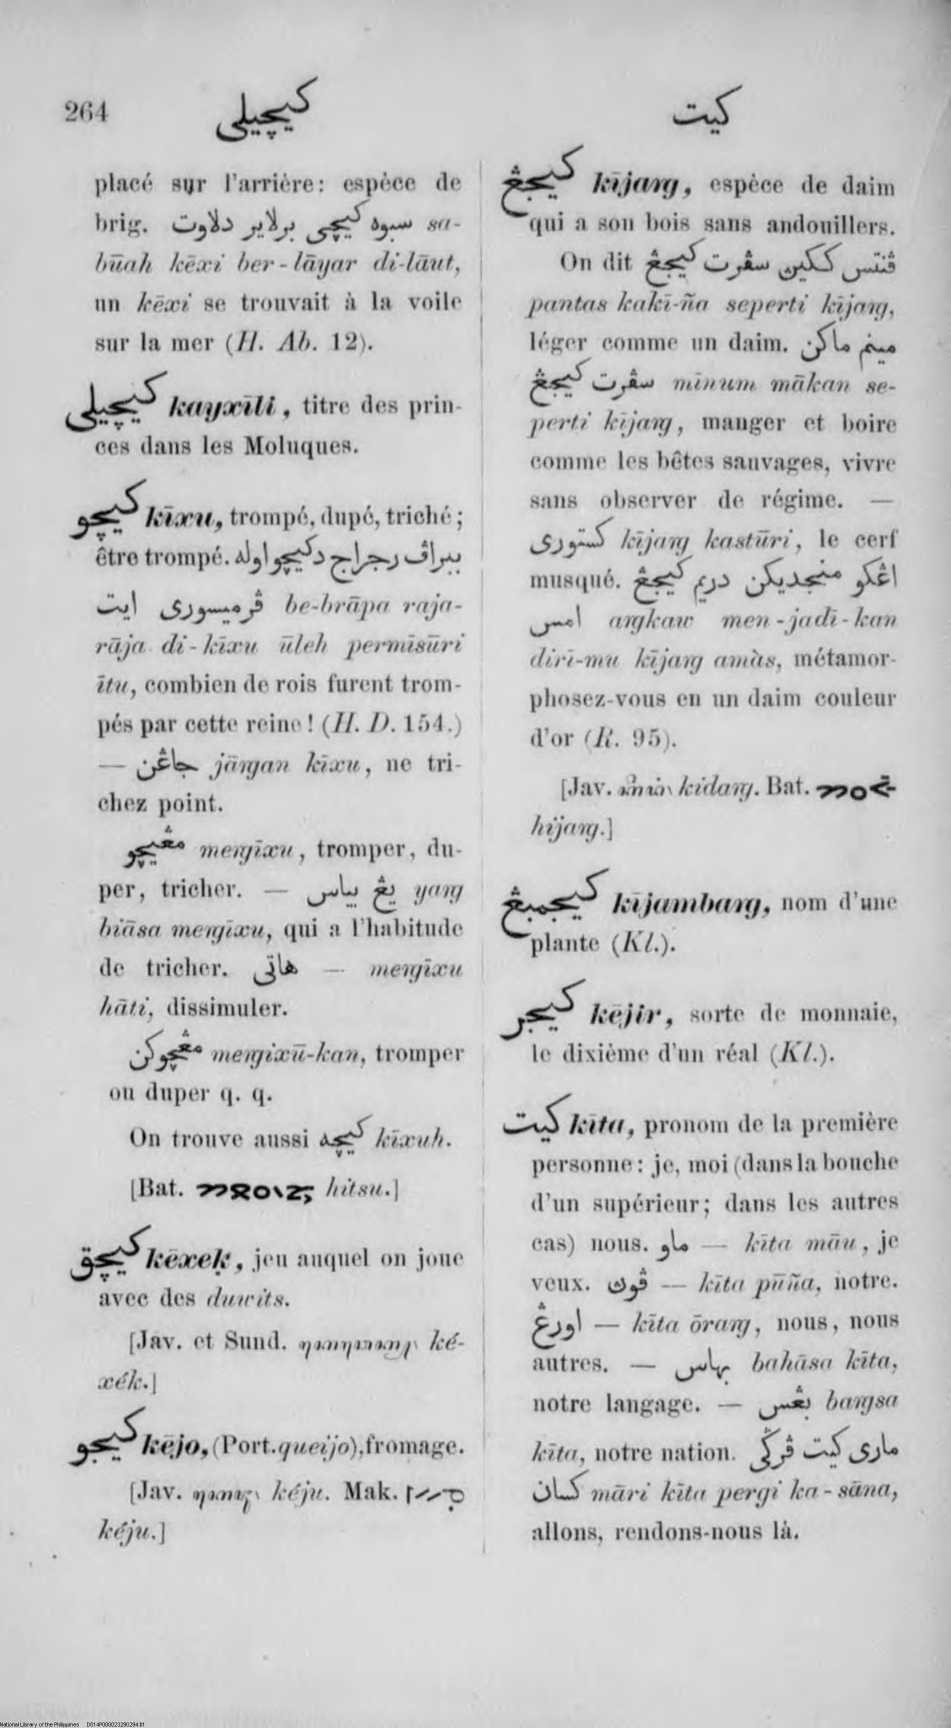 264
كيچيلي
كيت
placé sur l'arrière: espèce de
brig. سبوه كيچي برلاير دلاوت sa-
būah kēxi ber-lāyar di-lāut,
un kēxi se trouvait à la voile
sur la mer (H. Ab. 12).
كيچيلي kayxīli, titre des prin-
ces dans les Moluques.
كيچو kīxu, trompé, dupé, triché;
être trompé. ببراڤ رجراج دكيچو اوله
ڤرميسوري ايت be-brāpa raja-
rāja di-kīxu ūleh permīsūri
ītu, combien de rois furent trom-
pés par cette reine! (H. D. 154.)
— جاڠن jāngan kīxu, ne tri-
chez point.
مڠيچو mengīxu, tromper, du-
per, tricher. — يڠ بياس yang
biāsa mengīxu, qui a l'habitude
de tricher. هاتي — mengīxu
hāti, dissimuler.
مڠيچوكن mengixū-kan, tromper
ou duper q. q.
On trouve aussi كيچه kīxuh.
[Bat. hitsu.]
كيچق kēxeḳ, jeu auquel on joue
avec des duwits.
[Jav. et Sund. ké-
xék.]
كيجو kējo, (Port. queijo), fromage.
[Jav. kéju. Mak.
kéju.]
كيجڠ kījang, espèce de daim
qui a son bois sans andouillers.
On dit ڤنتس ككين سڤرت كيجڠ
pantas kakī-ña seperti kījang,
léger comme un daim. مينم ماكن
سڤرت كيجڠ mīnum mākan se-
perti kījang, manger et boire
comme les bêtes sauvages, vivre
sans observer de régime. —
كستوري kījang kastūri, le cerf
musqué. اڠكو منجديكن دريم كيجڠ
امس angkaw men-jadī-kan
dirī-mu kījang amàs, métamor-
phosez-vous en un daim couleur
d'or (R. 95).
[Jav. kidang. Bat.
hijang.]
كيجمبڠ kījambang, nom d'une
plante (Kl.).
كيجر kējir, sorte de monnaie,
le dixième d'un réal (Kl.).
كيت kīta, pronom de la première
personne: je, moi (dans la bouche
d'un supérieur; dans les autres
cas) nous. ماو — kīta māu, je
veux. ڤوڽ — kīta pūña, notre.
اورڠ — kīta ōrang, nous, nous
autres. — بهاس bahāsa kīta,
notre langage. — بڠس bangsa
kīta, notre nation. ماري كيت ڤرݢي
كسان māri kīta pergi ka-sāna,
allons, rendons-nous là.
National Library of the Philippines